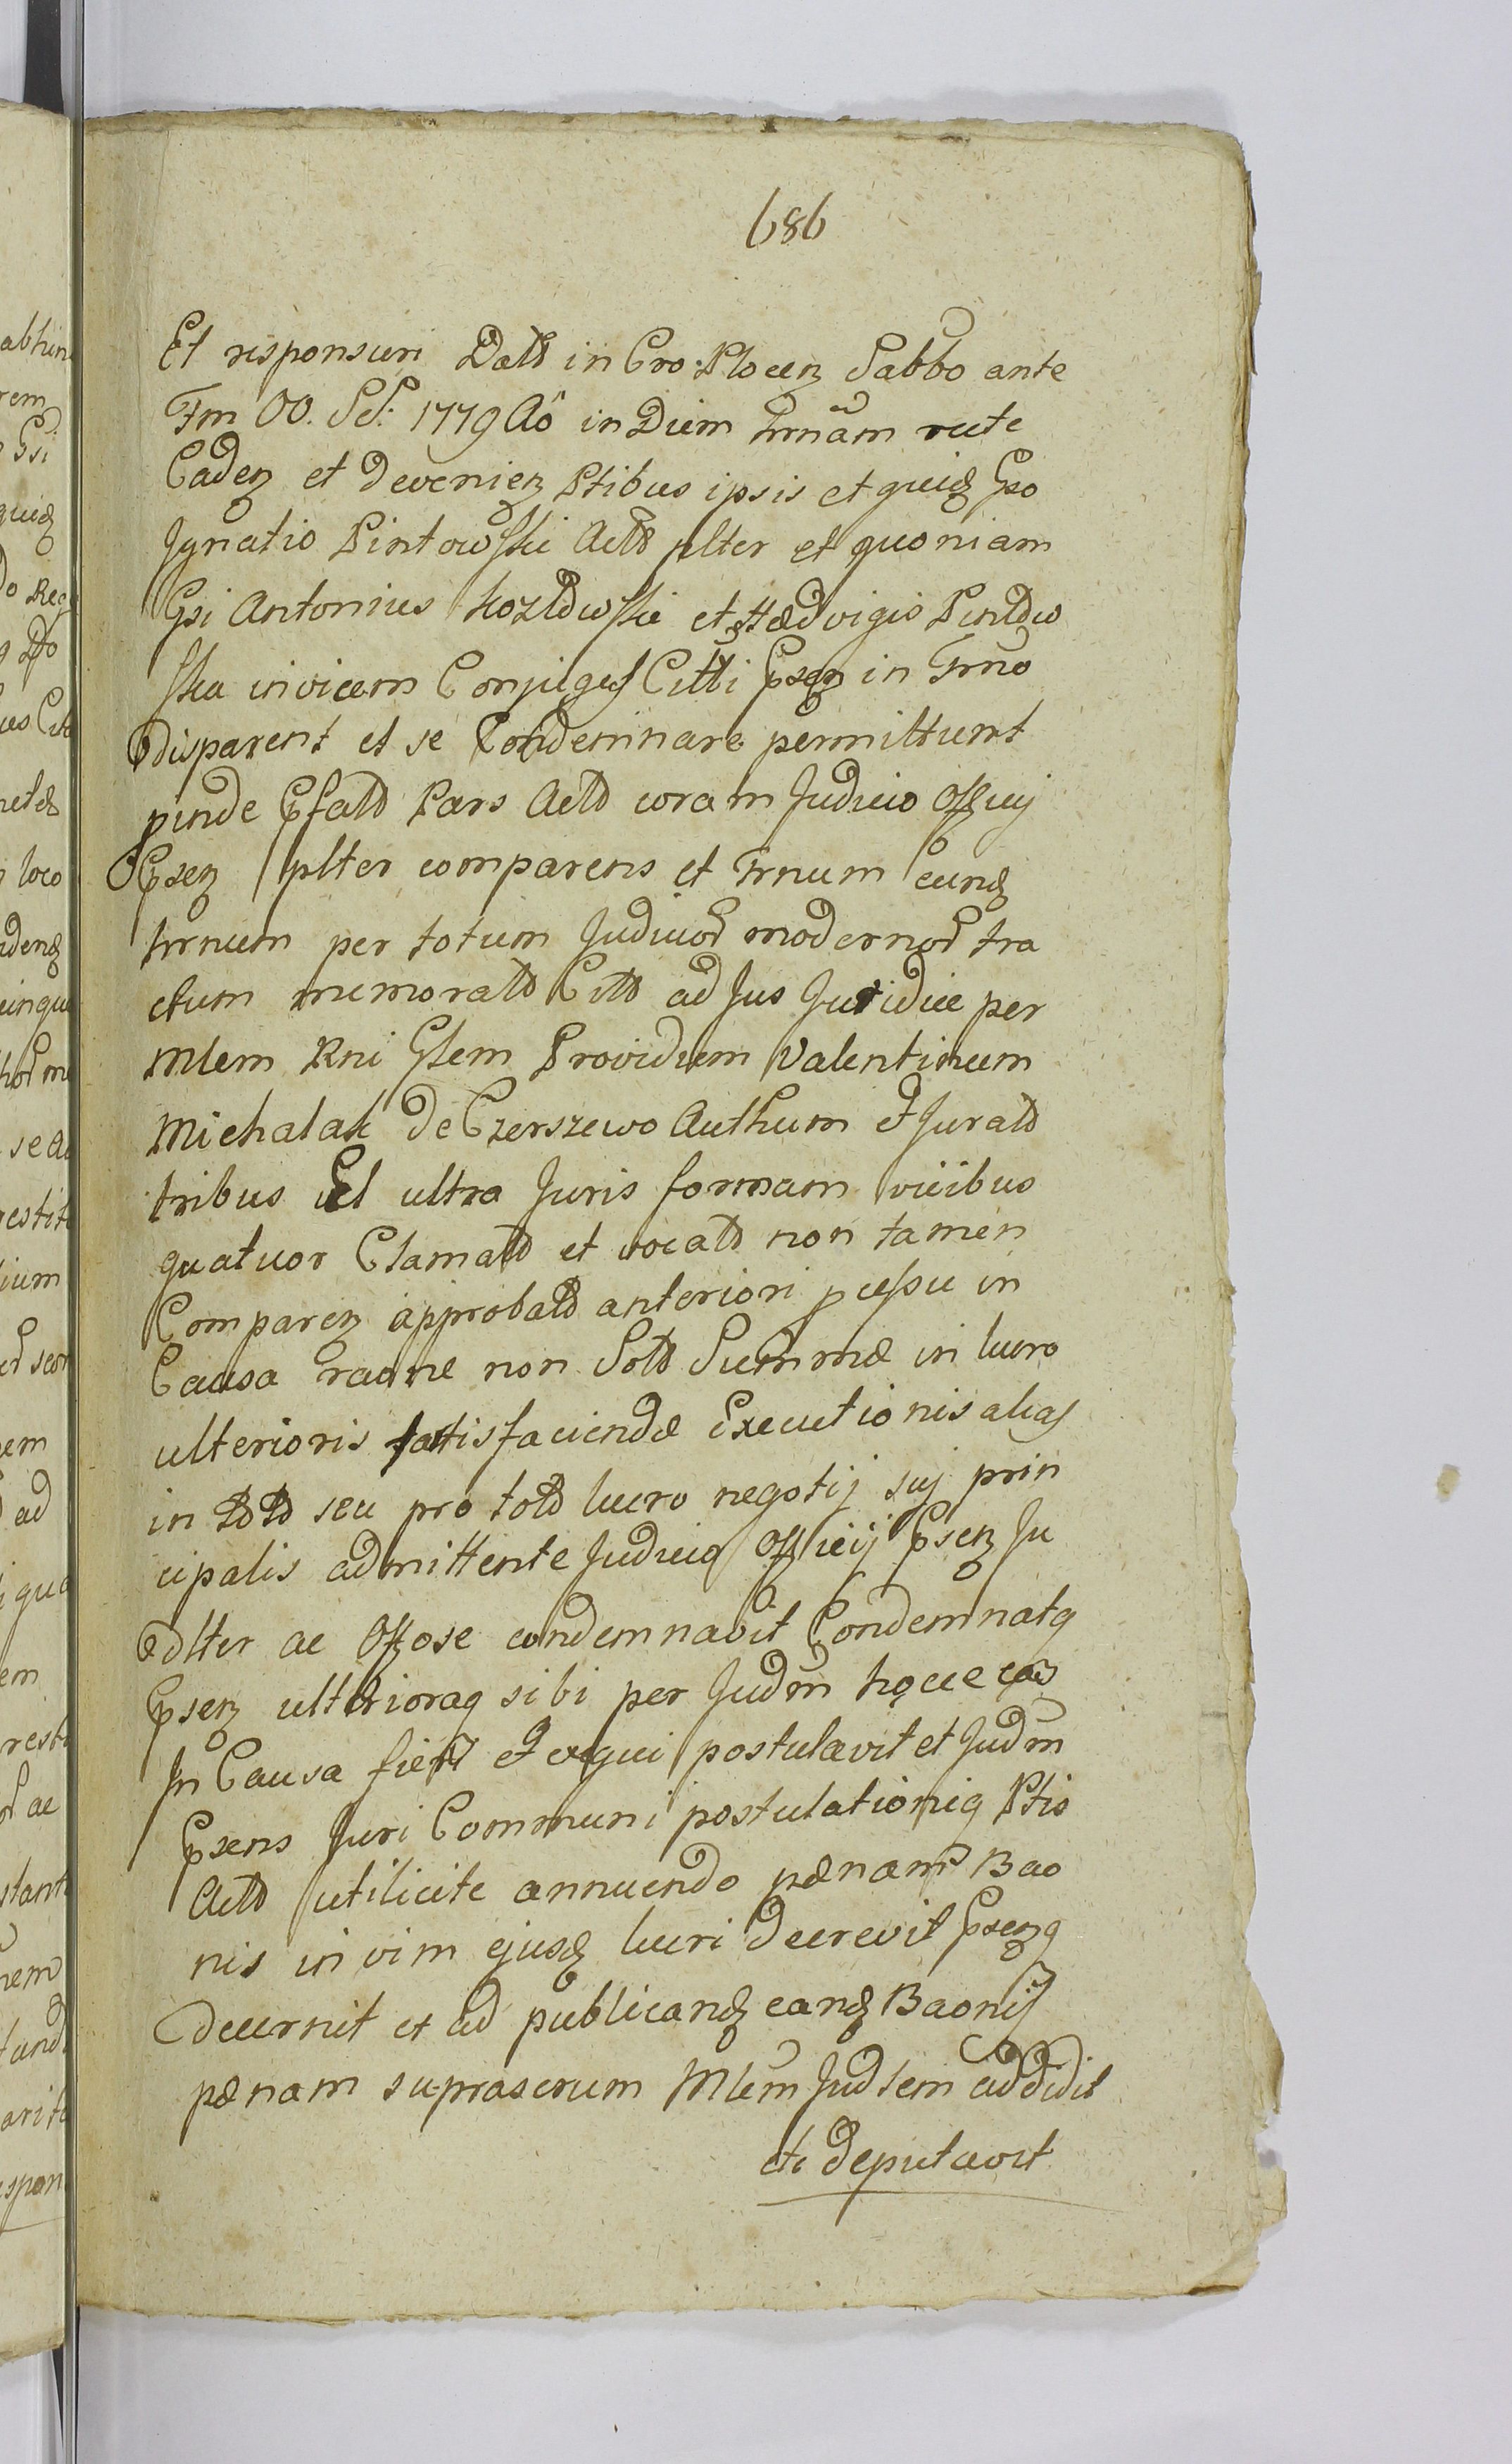 686
Et responsuri Datt in Cro: Plocen Sabbo ante
Fm OO. SS: 1779 Aô in Diem hrnam recte
Caden et devenien Ptibus ipsis et quid Gso
Ignatio Pintowski Actt plter et quoniam
Gsi Antonius Kozłowski et Hædvigis Pintow
ska invicem Conjuges Citti Psen in Trno
disparent et se Condemnare permittunt
pinde Pfatt Pars Actt coram Judicio Officij
Psen plter comparens et Trnum eund
hrnum per totum Judicior modernor tra
ctum memoratt Citt ad Jus Juridice per
Mlem Rni Glem Providum Valentinum
Michalak de Czerszewo Authum et Juratt
tribus vel ultra Juris formam vicibus
quatuor Clamatt et vocatt non tamen
Comparen approbatt anteriori pcessu in
Causa raone non Sott Summæ in lucro
ulterioris satisfaciendæ Executionis alias
in toto seu pro toto lucro negotij suj prin
cipalis admittente Judicio Officij Psen Ju
dlter ac Offose condemnavit Condemnatq
Psen ulterioraq sibi per Judm hocce eas
In Causa fieri et exequi postulavit et Judm
Psens Juri Communi postulationiq Ptis
Actt utilicite annuendo pænam Bao
nis in vim ejusd lucri decrevit Psenq
decernit et ad publicand eand Baonis
pænam suprascrum Mlem Judlem addidit
et deputavit
abhin
rem
Gsi
quid
do
loco
se
ium
em
ad
qua
em
ac